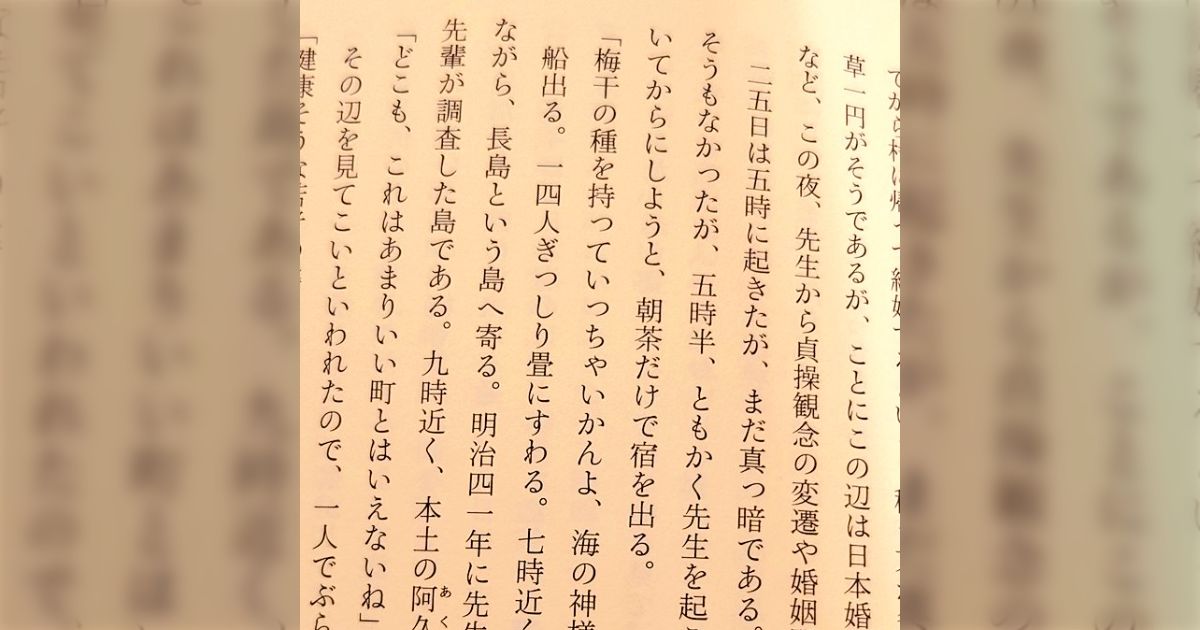 草一円がそうであるが、ことにこの辺は日本婚
など、この夜、先生から貞操観念の変遷や婚姻
二五日は五時に起きたが、まだ真っ暗である。
そうもなかったが、五時半、ともかく先生を起こ
いてからにしようと、朝茶だけで宿を出る。
「梅干の種を持っていっちゃいかんよ、海の神様
船出る。一四人ぎっしり畳にすわる。七時近く
ながら、長島という島へ寄る。明治四一年に先生
先輩が調査した島である。九時近く、本土の阿久
「どこも、これはあまりいい町とはいえないね」
その辺を見てこいといわれたので、一人でぶら
「健康そうな